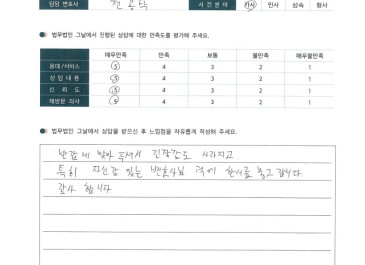 담당 변호사 전공탁 사건분야 가사 민사 상속 형사
법무법인 그날에서 진행된 상담에 대한 만족도를 평가해 주세요.
매우만족 만족 보통 불만족 매우불만족
응대/서비스 5 4 3 2 1
상담내용 5 4 3 2 1
신뢰도 5 4 3 2 1
재방문 의사 5 4 3 2 1
법무법인 그날에서 상담을 받으신 후 느낌점을 자유롭게 작성해 주세요.
반갑게 맞아 주셔서 긴장감도 사라지고
특히 자신감 있는 변호사님 덕에 한시름 놓고 갑니다
감사 합니다